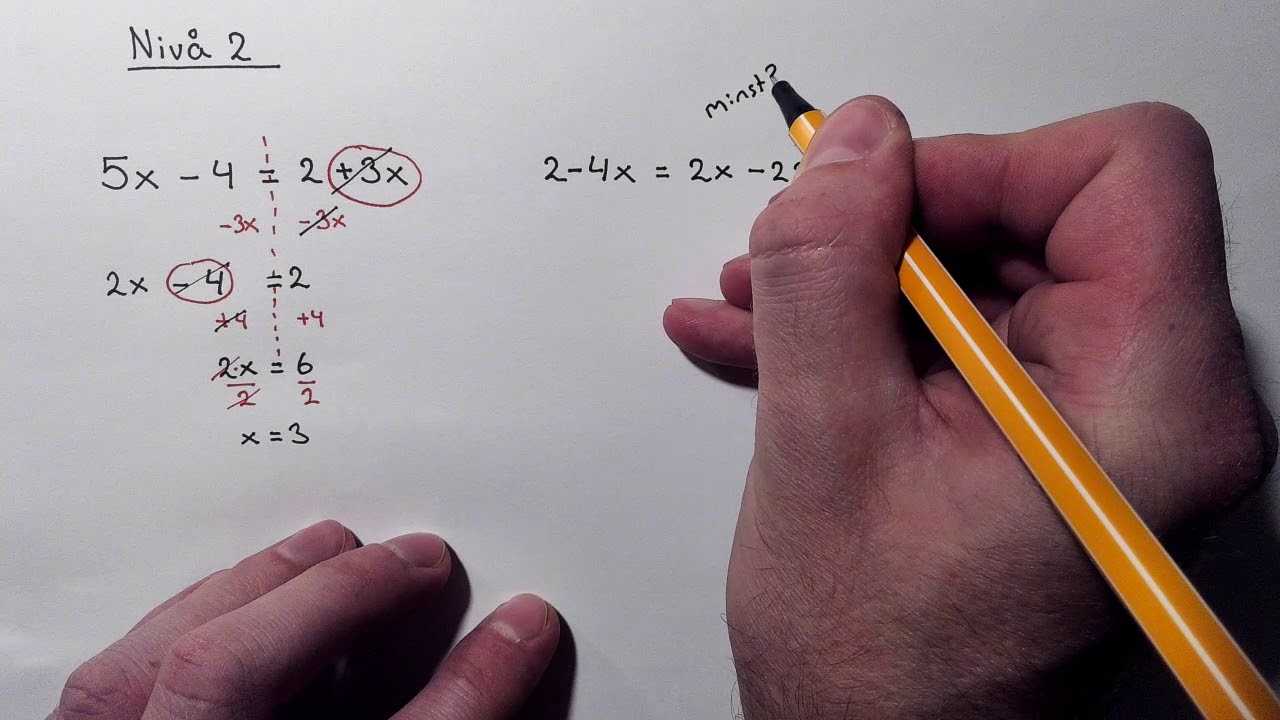 Nivå 2
5x - 4 = 2 + 3x
-3x -3x
2x - 4 = 2
+4 +4
2·x = 6
2 2
x = 3
minst?
2-4x = 2x -2